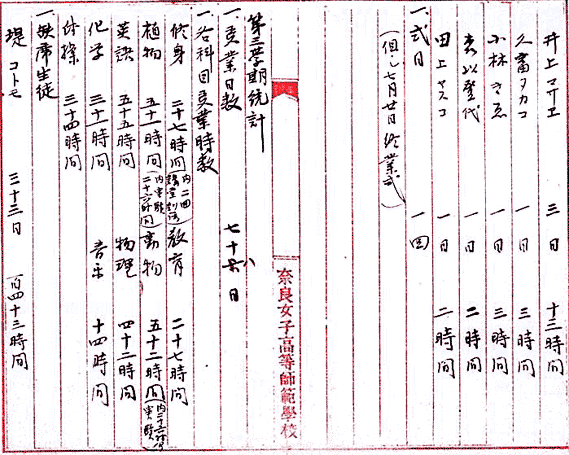 井上マサエ 三日 十三時間
一日 三時間
小林きゑ 一日 三時間
登代 一日 二時間
田上ヤスコ 一日 二時間
一、式日 一回
(但し七月廿日終業式)
奈良女子高等師範學校
第三學期統計
一、授業日数 七十八日
一、各科目授業時数
修身 二十七時間 教育 二十七時間
植物 五十一時間(内実験二十六時間) 動物 五十二時間
英語 五十五時間 物理 四十二時間
化学 三十一時間 音楽 十四時間
体操 三十四時間
一、欠席生徒
堤コトモ 三十三日 百四十三時間